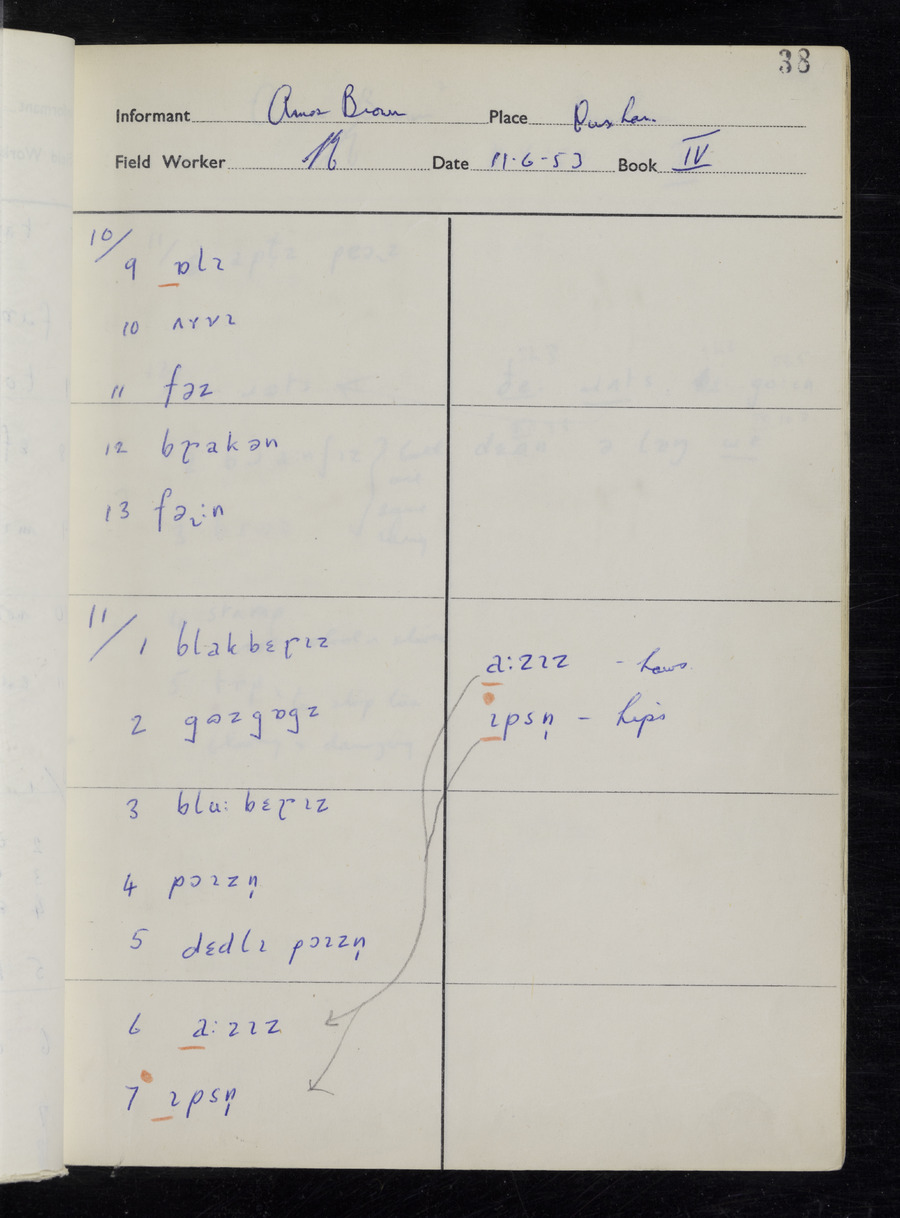 38
Informant Amos Brown Place
Field Worker Date 11-6-53 Book IV
10/
9 ɒlɪ
10 ʌɤvz
11 fəz
12 bɽakən
13 fəɪ:n
11/
1 blakbɛɽɪz
2 gɷzgɒgz
3 blu: bɛɽɪz
4 pɔɪzn̩
5 dɛdlɪ pɔɪzn̩
6 a:zɪz
7 ɪpsn̩
a:zɪz - haws
ɪpsn̩ - hips